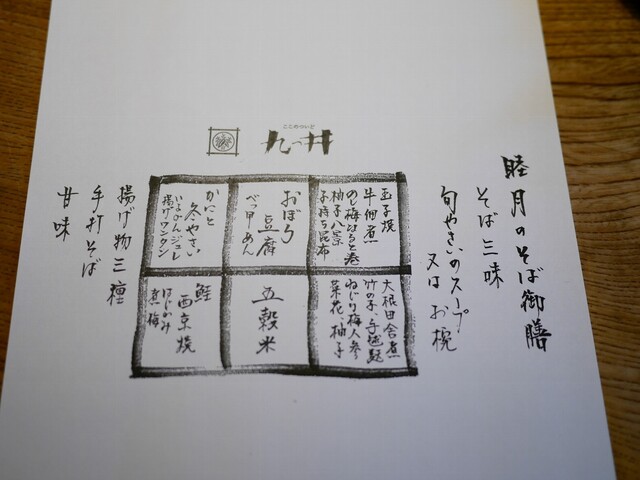 睦月のそば御膳
そば三味
旬やさいのスープ
又はお椀
ここのついど
九つ井
玉子焼
牛佃煮
のし梅はちと巻
柚子八景
子持ち昆布
おぼろ
豆腐
べっ甲あん
かにと
冬やさい
いよかんジュレ
揚げワンタン
大根田舎煮
竹の子
ねじり梅人参
菜花、柚子
五穀米
鮭
西京焼
はじかみ
煮梅
揚げ物三種
手打そば
甘味